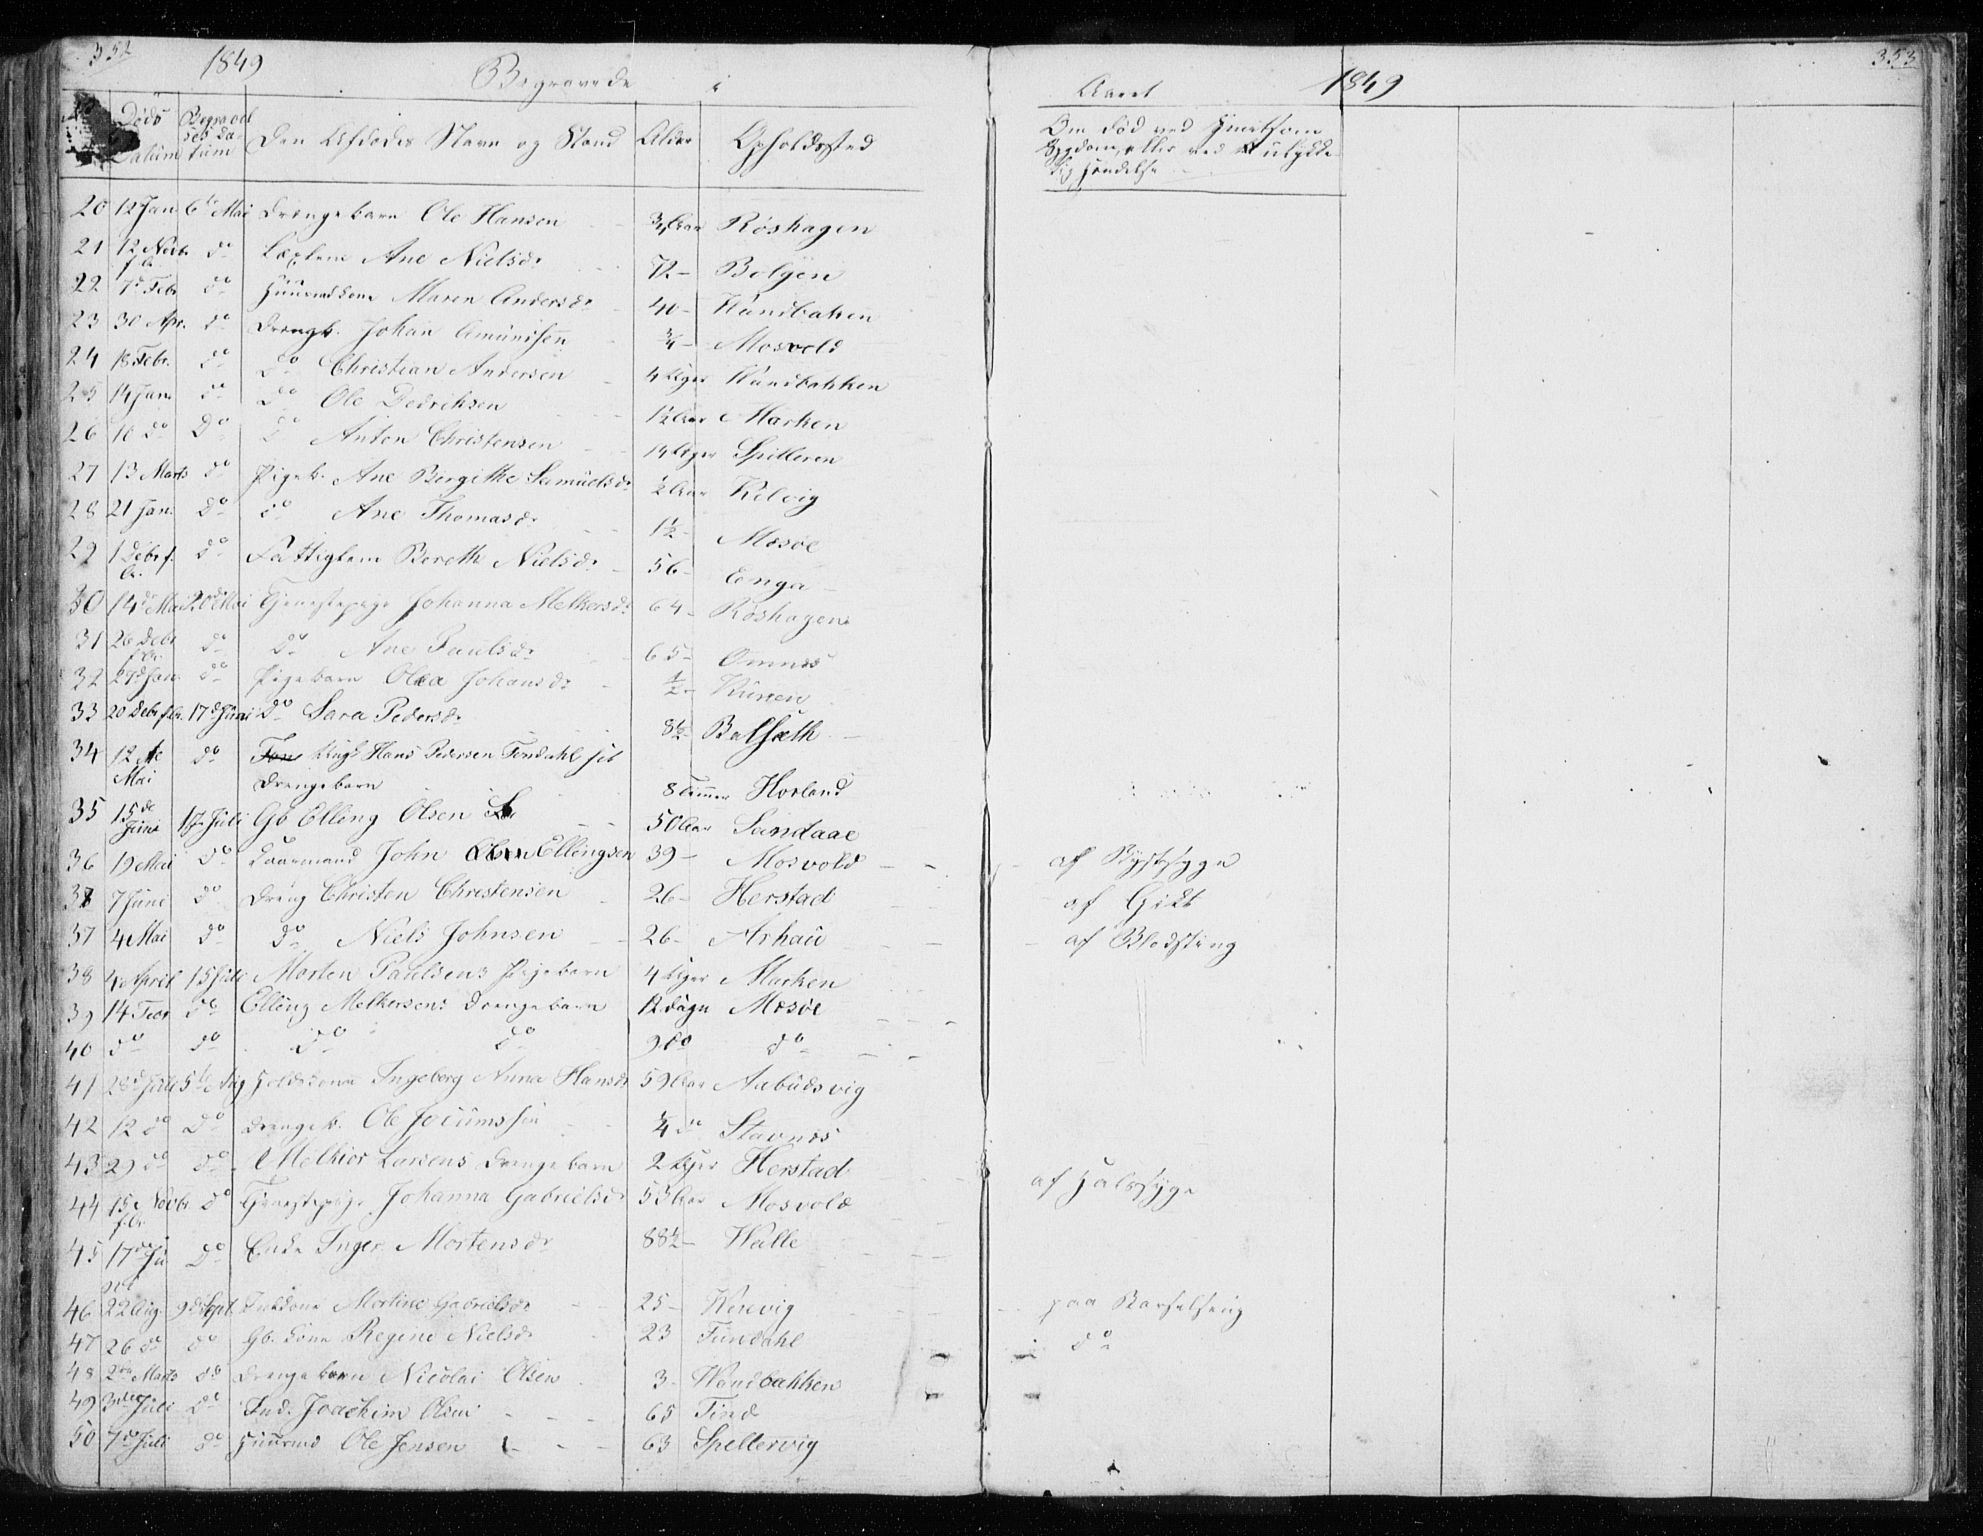 352 1849 Begravede i Aaret 1849 353
Døds Datum Begravelses Datum Den Afdødes Navn og Stand Alder Opholdssted Om død ved Smitsom
Sygdom, eller ved ulykke-
lig Hændelse
20 12 Jan 6te Mai Drengebarn Ole Hansen 3/4 Aar Røshagen
21 12 Novbr. f. A. do Ane Nielsdr 72 - Bolgen
22 7d Febr do Huusmdkone Maren Andersdr 40 - Hundbakken
23 30 Apr. do Drengb. Johan Amundsen 3/4 - Mosvold
24 18 Febr. do do Christian Andersen 4 Uger Hundbakken
25 14 Jan do do Ole Dedriksen 1½ Aar Marken
26 16 do Do do Anton Christensen 14 Uger Spilleren
27 13 Marts do Pigeb. Ane Birgithe Samuelsdr ½ Aar Kilvig
28 21 Jan. do do Ane Thomasdr 1½ - Mosøe
29 1 Debr f. A. do Fattiglem Bereth Nielsdr 56 - Enga
30 14de Mai 20de Mai Tjenestepige Johanna Melkersdr 64 - Røshagen
31 26 Debr f. A. do do Ane Paulsdr 65 - Omnes
32 29d Jan. do Pigebarn Olea Johansdr ½ - Kunen
33 20 Debr f. A. 17d Juni do Sara Pedersdr 8½ - Balsæth
34 12te Mai do Ungk Hans Pedersen Fondahl
Drengebarn 8 Timer Horland
35 15de Juni 1ste Juli Gb Elling Olsen 50 Aar Sandaae
36 19 Mai do Kaarmand John Ellingsen 39 - Mosvold - af Brystsyge
37 7 Juni do Dreng Christen Christensen 26 - Herstad af Gikt
37 4 Mai do do Niels Johnsen 26 - Arhau - af Blodsting
38 4 April 15 Juli Morten Paulsens Pigebarn 4 Uger Marken
39 14 Febr do Elling Melkersens Drengebarn 12 dage Mosøe
40 do do do do 9 do do
41 28d Juli 5te Aug Ingeborg Anna Hansdr 59 Aar Aabudsvig
42 12 do Do Drengeb. Ole Jocumssen ¼ do Stavnes
43 29 do do Melkior Larsens Drengebarn 2 Uger Herstad
44 15 Novbr. f. A. do Tjenestepige Johanna Gabrielsdr 53 Aar Mosvold af Halssyge
45 17de Juni Do Enke Inger Mortensdr 88½ - Walle
46 22 Aug. 9de Sept. Indkone Martine Gabrielsdr 25 - Kirevig paa Barselseng
47 26 do do Gb. Kone Regine Nielsdr 23 Fundahl do
48 2den Marts do Drengebarn Nicolai Olsen 3 - Hundbakken
49 3die Juli do Ind. Joachim Olsen 65 Find
50 7de Juli do Huusmd Ole Jensen 63 Spellervig